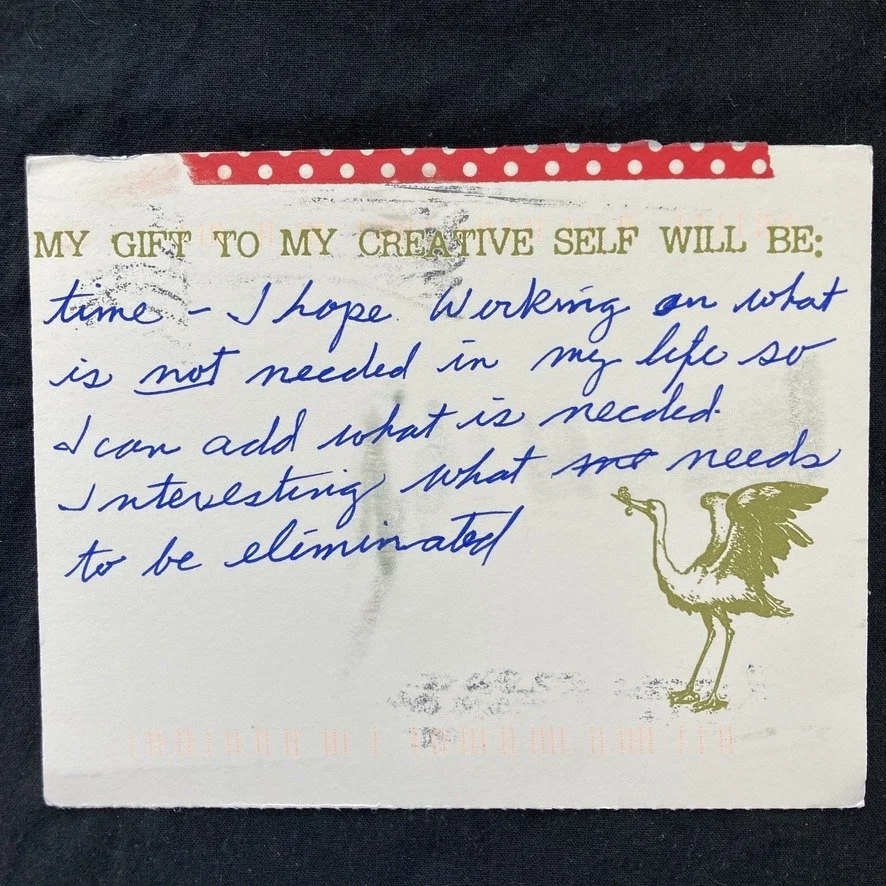 MY GIFT TO MY CREATIVE SELF WILL BE:
time - I hope. Working on what
is not needed in my life so
I can add what is needed.
Interesting what needs
to be eliminated